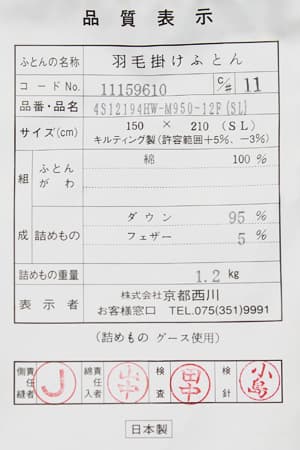 品質表示
ふとんの名称 羽毛掛けふとん
コードNo. 11159610 C/# 11
品番・品名 4S12194HW-M950-12F(SL)
サイズ(cm) 150 × 210 (SL)
キルティング製(許容範囲+5%、-3%)
組成 ふとんがわ 綿 100 %
詰めもの ダウン 95 %
フェザー 5 %
詰めもの重量 1.2 kg
表示者 株式会社 京都西川
お客様窓口 TEL.075(351)9991
(詰めもの グース使用)
側縫責任者 J 綿入責任者 山中 検査 田中 検針 小島
日本製